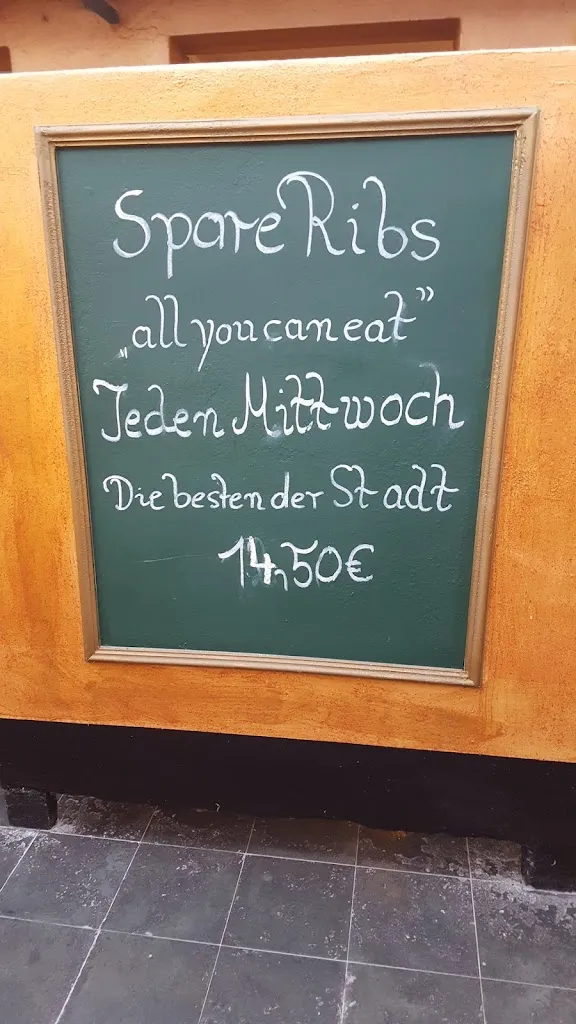 Spare Ribs
„all you can eat”
Jeden Mittwoch
Die besten der Stadt
14,50€